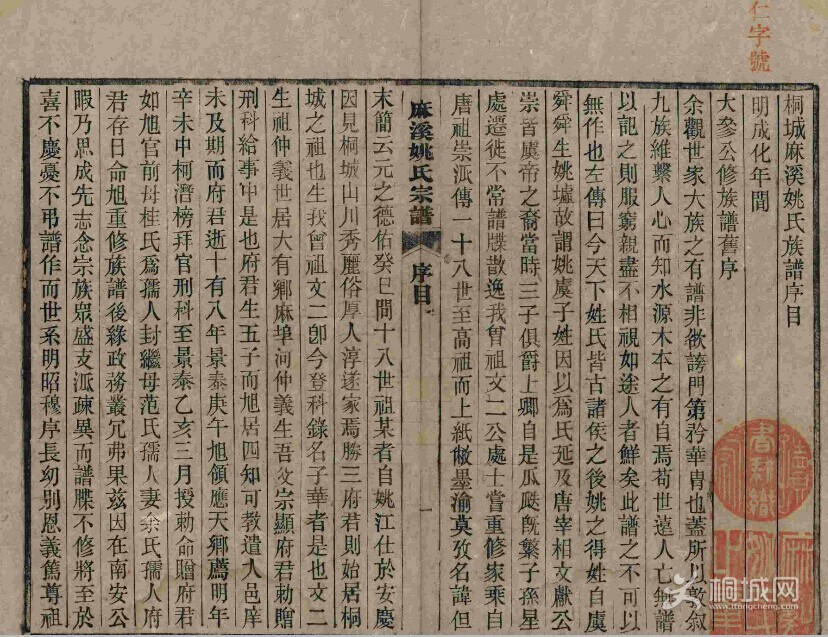 仁字號
桐城麻溪姚氏族譜序目
明成化年間
大參公修族譜舊序
余觀世家大族之有譜非欲誇門第矜華胄也蓋所以敦叙
九族維繫人心而知水源木本之有自焉苟世遠人亡無譜
以記之則服窮親盡不相視如途人者鮮矣此譜之不可以
無作也左傳曰今天下姓氏皆古諸侯之後姚之得姓自虞
舜舜生姚墟故謂姚虞子姓因以爲氏延及唐宰相文獻公
崇皆虞帝之裔當時三子俱爵上卿自是瓜瓞既繁子孫星
處遷徙不常譜牒散逸我曾祖文二公處士嘗重修家乘自
唐祖崇派傳一十八世至高祖而上紙敝墨渝莫攷名諱但
麻溪姚氏宗譜 序目 一
末簡云元之德佑癸巳間十八世祖某者自姚江仕於安慶
因見桐城山川秀麗俗厚人淳遂家焉勝三府君則始居桐
城之祖也生我曾祖文二卽今登科錄名子華者是也文二
生祖仲義世居大有鄉麻埠河仲義生吾父宗顯府君勅贈
刑科給事中是也府君生五子而旭居四知可教遣入邑庠
未及期而府君逝十有八年景泰庚午旭領應天鄉薦明年
辛未中柯潛榜拜官刑科至景泰乙亥三月授勅命贈府君
如旭官前母桂氏爲孺人封繼母范氏孺人妻余氏孺人府
君存日命旭重修族譜後緣政務叢冗弗果兹因在南安公
暇乃思成先志念宗族眾盛支派疎異而譜牒不修將至於
喜不慶憂不弔譜作而世系明昭穆序長幼別恩義篤尊祖
桐城网
www.ttongcheng.com